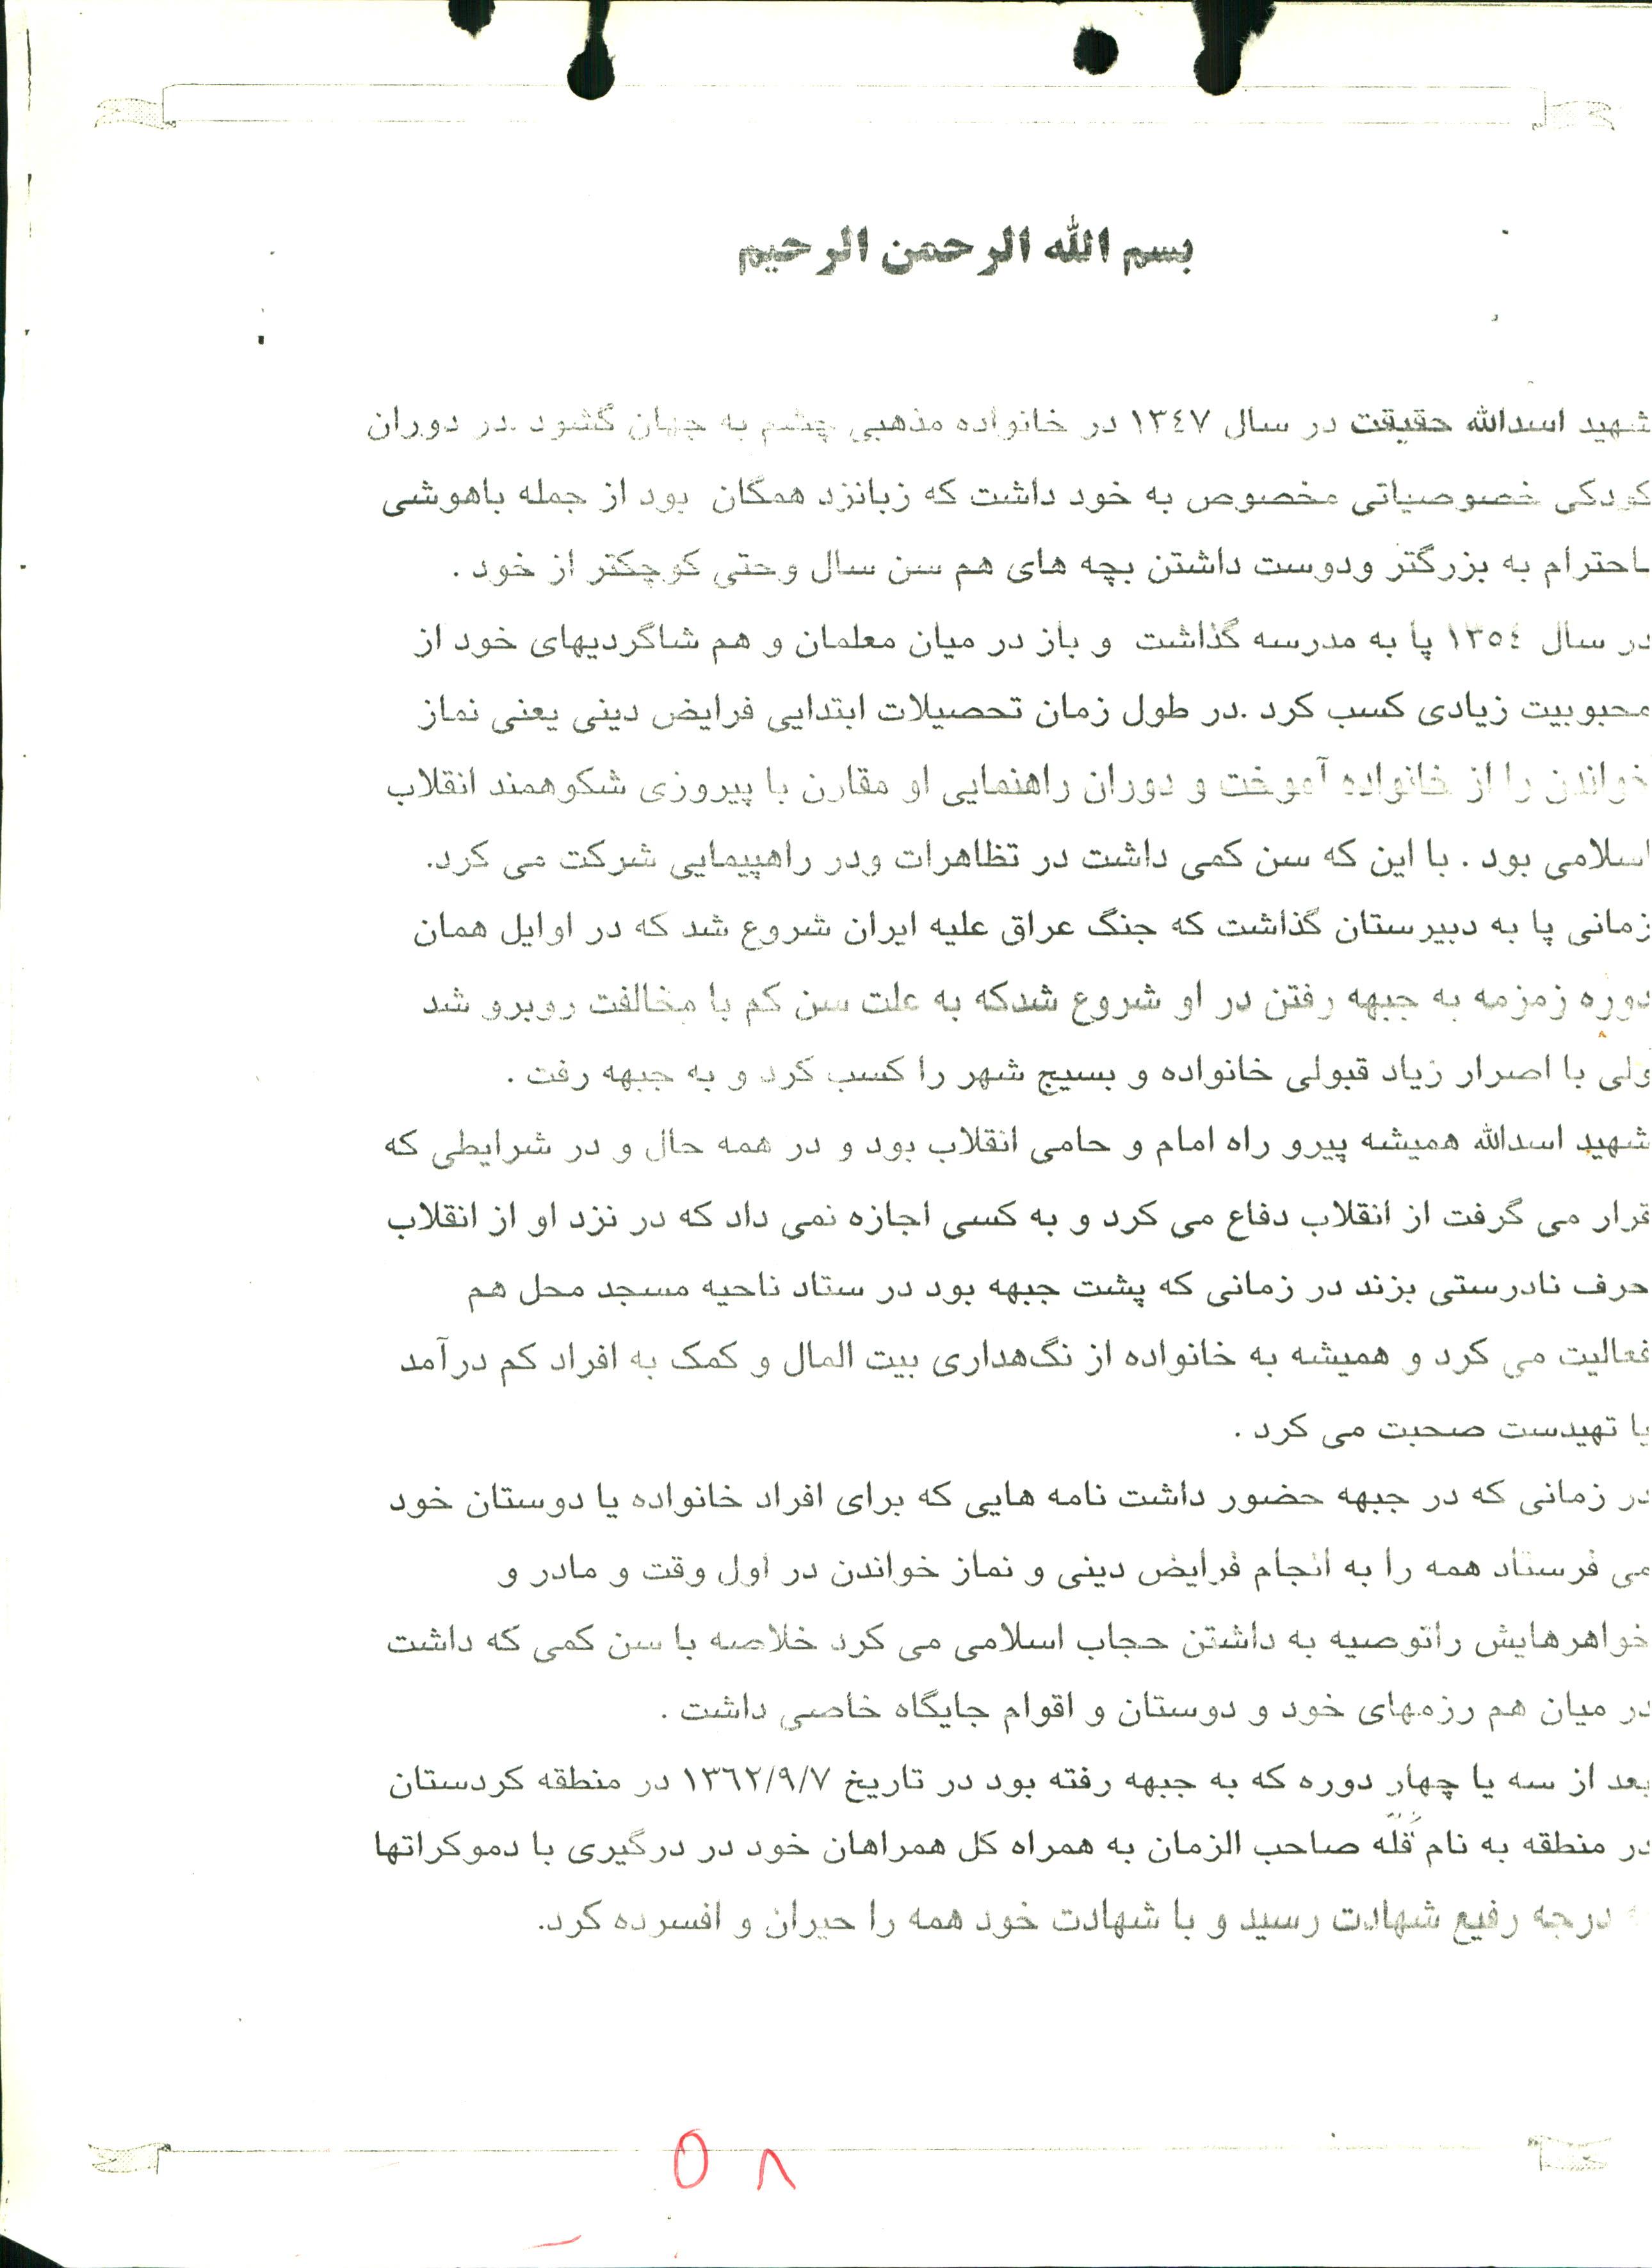 بسم الله الرحمن الرحیم
شهید اسدالله حقیقت در سال ١٣٤٧ در خانواده مذهبی چشم به جهان گشود .در دوران
کودکی خصوصیاتی مخصوص به خود داشت که زبانزد همگان بود از جمله باهوشی
احترام به بزرگتر ودوست داشتن بچه های هم سن سال وحتی کوچکتر از خود .
در سال ١٣٥٤ پا به مدرسه گذاشت و باز در میان معلمان و هم شاگردیهای خود از
محبوبیت زیادی کسب کرد .در طول زمان تحصیلات ابتدایی فرایض دینی یعنی نماز
خواندن را از خانواده آموخت و دوران راهنمایی او مقارن با پیروزی شکوهمند انقلاب
اسلامی بود . با این که سن کمی داشت در تظاهرات ودر راهپیمایی شرکت می کرد.
زمانی پا به دبیرستان گذاشت که جنگ عراق علیه ایران شروع شد که در اوایل همان
دوره زمزمه به جبهه رفتن در او شروع شدکه به علت سن کم با مخالفت روبرو شد
ولی با اصرار زیاد قبولی خانواده و بسیج شهر را کسب کرد و به جبهه رفت .
شهید اسدالله همیشه پیرو راه امام و حامی انقلاب بود و در همه حال و در شرایطی که
قرار می گرفت از انقلاب دفاع می کرد و به کسی اجازه نمی داد که در نزد او از انقلاب
حرف نادرستی بزند در زمانی که پشت جبهه بود در ستاد ناحیه مسجد محل هم
فعالیت می کرد و همیشه به خانواده از نگهداری بیت المال و کمک به افراد کم درآمد
یا تهیدست صحبت می کرد .
در زمانی که در جبهه حضور داشت نامه هایی که برای افراد خانواده یا دوستان خود
می فرستاد همه را به انجام فرایض دینی و نماز خواندن در اول وقت و مادر و
خواهرهایش راتوصیه به داشتن حجاب اسلامی می کرد خلاصه با سن کمی که داشت
در میان هم رزمهای خود و دوستان و اقوام جایگاه خاصی داشت .
بعد از سه یا چهار دوره که به جبهه رفته بود در تاریخ ١٣٦٢/٩/٧ در منطقه کردستان
در منطقه به نام قلّه صاحب الزمان به همراه کل همراهان خود در درگیری با دموکراتها
درجه رفیع شهادت رسید و با شهادت خود همه را حیران و افسرده کرد.
٥٨